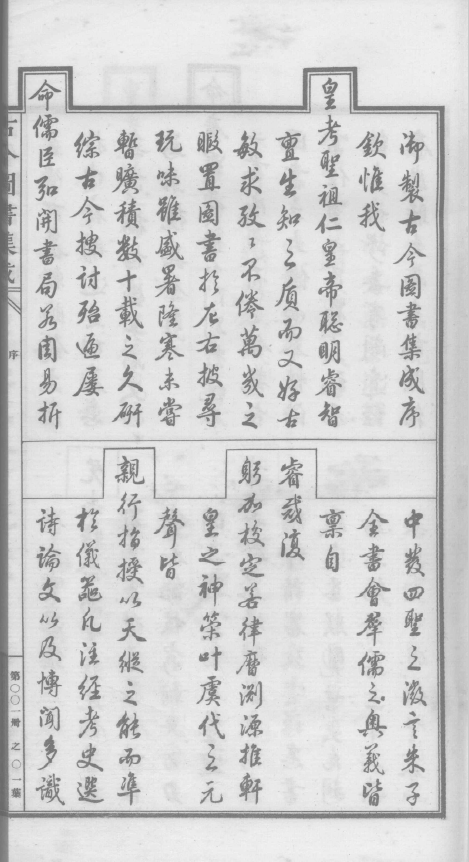 御製古今圖書集成序
欽惟我
皇考聖祖仁皇帝聰明睿智
亶生知之質而又好古
敏求孜孜不倦萬幾之
暇置圖書於左右披尋
玩味雖盛暑隆寒未嘗
暫曠積數十載之久研
綜古今搜討殆遍屢
命儒臣弘開書局若周易折
中發四聖之微言朱子
全書會羣儒之奧義皆
禀自
睿裁復
躬加校定若律曆淵源推軒
皇之神筴叶虞代之元
聲皆
親行指授以天縱之能而準
於儀器凡注經考史選
詩論文以及博聞多識
古今圖書集成
序
第〇〇一冊之〇一葉